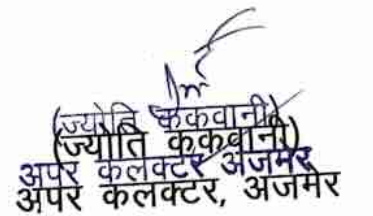 (ज्योति ककवानी)
(ज्योति ककवानी)
अपर कलक्टर अजमेर
अपर कलक्टर, अजमेर